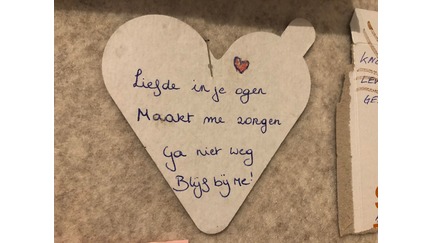 Liefde in je ogen
Maakt me zorgen
Ga niet weg
Blijf bij me!